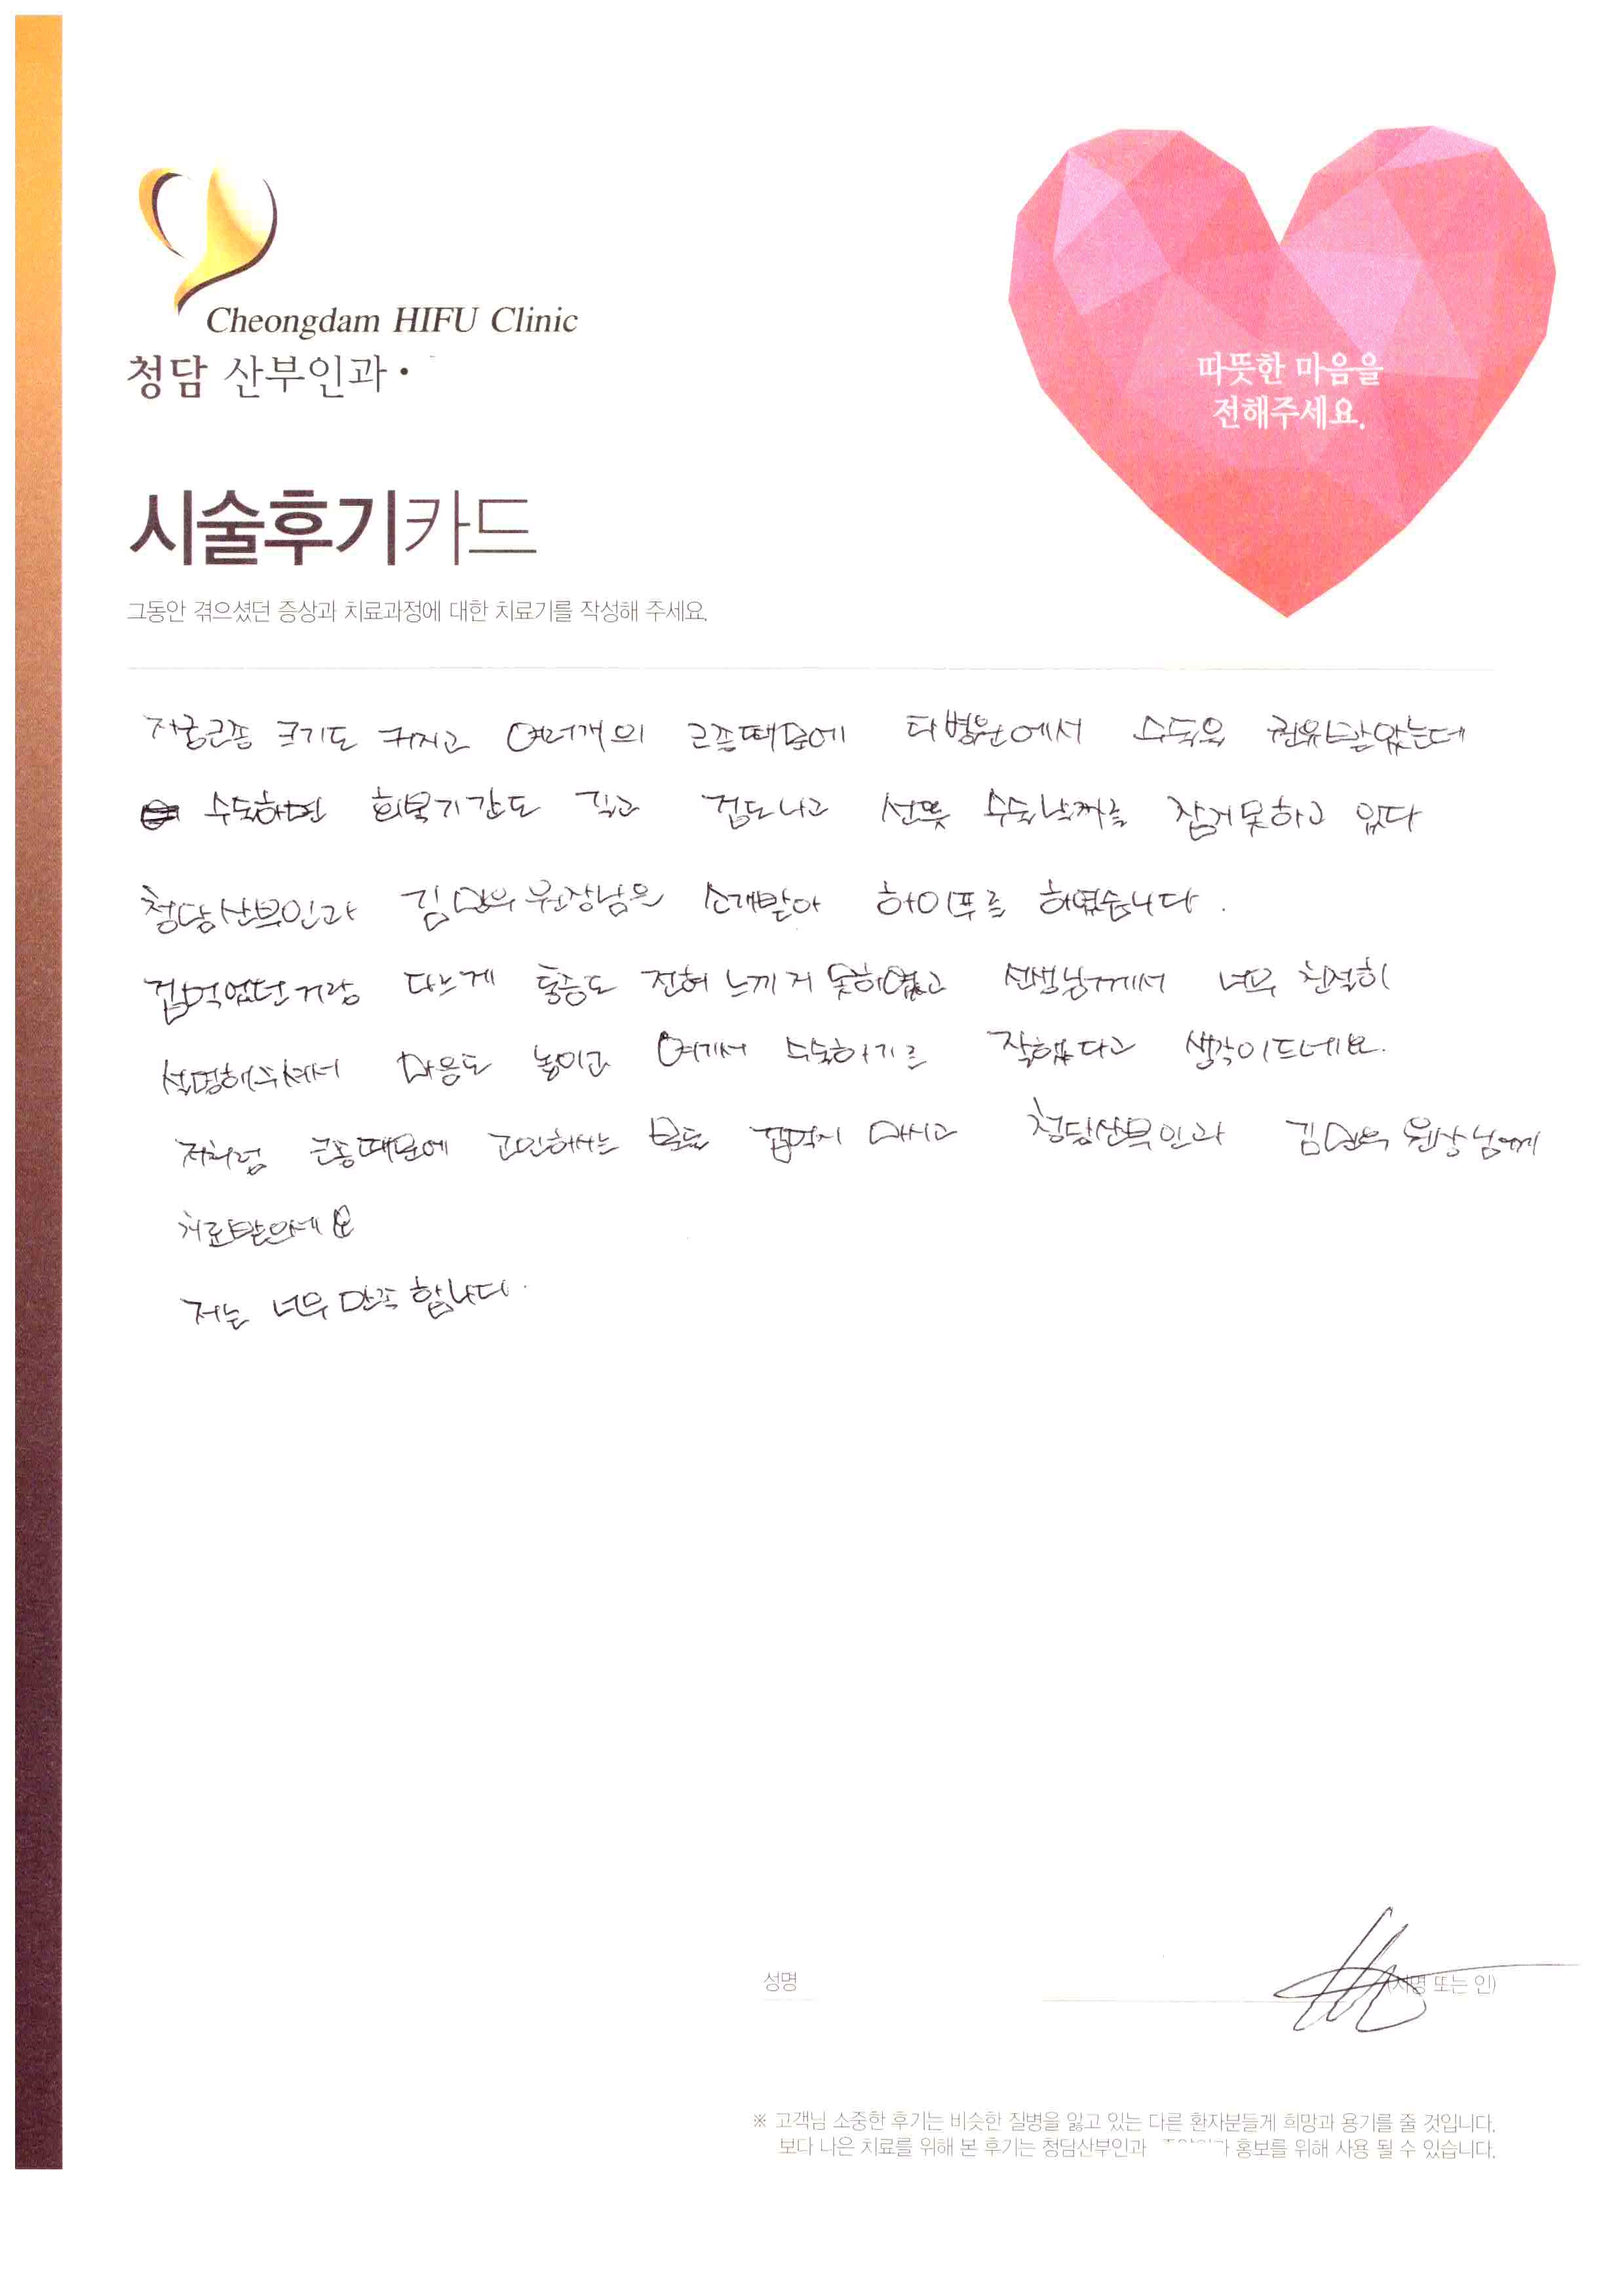 Cheongdam HIFU Clinic
청담 산부인과·
따뜻한 마음을
전해주세요.
시술후기카드
그동안 겪으셨던 증상과 치료과정에 대한 치료기를 작성해 주세요.
자궁근종 크기도 커지고 여러개의 근종때문에 타병원에서 수술을 권유받았는데
수술하면 회복기간도 길고 겁도나고 선뜻 수술날짜를 잡지못하고 있다
청담산부인과 김민우 원장님을 소개받아 하이푸를 하였습니다.
겁먹었던거랑 다르게 통증도 전혀 느끼지 못하였고 선생님께서 너무 친절히
설명해주셔서 마음도 놓이고 여기서 수술하기를 잘했다고 생각이드네요.
저처럼 근종때문에 고민하시는 분들 겁먹지 마시고 청담산부인과 김민우 원장님에게
치료받으세요
저는 너무 만족합니다.
성명
(서명 또는 인)
※ 고객님 소중한 후기는 비슷한 질병을 앓고 있는 다른 환자분들게 희망과 용기를 줄 것입니다.
보다 나은 치료를 위해 본 후기는 청담산부인과 홍보를 위해 사용 될 수 있습니다.